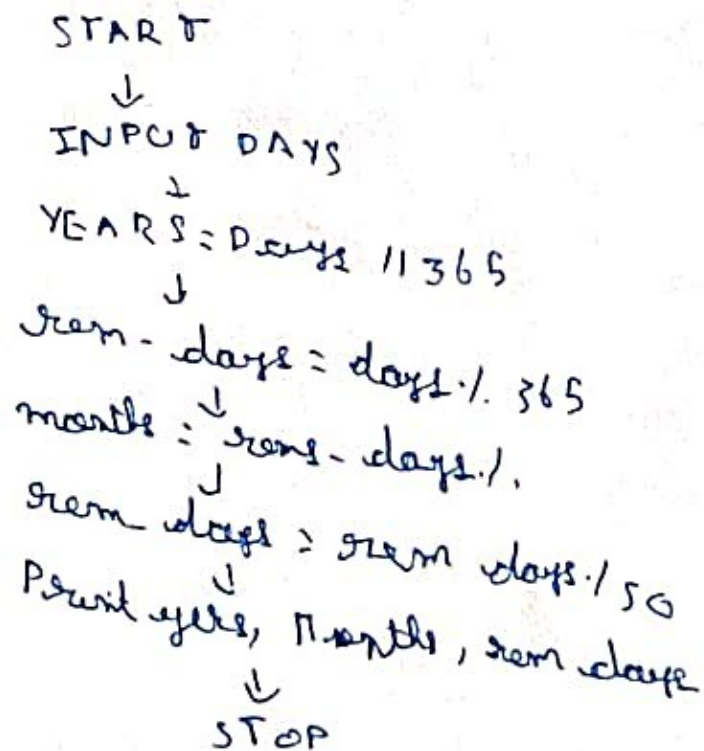 START
↓
INPUT DAYS
↓
YEARS = Days // 365
↓
rem - days = days % 365
↓
months = rems - days %
↓
rem days = rem days % 50
↓
Print yers, Months, rem days
↓
STOP